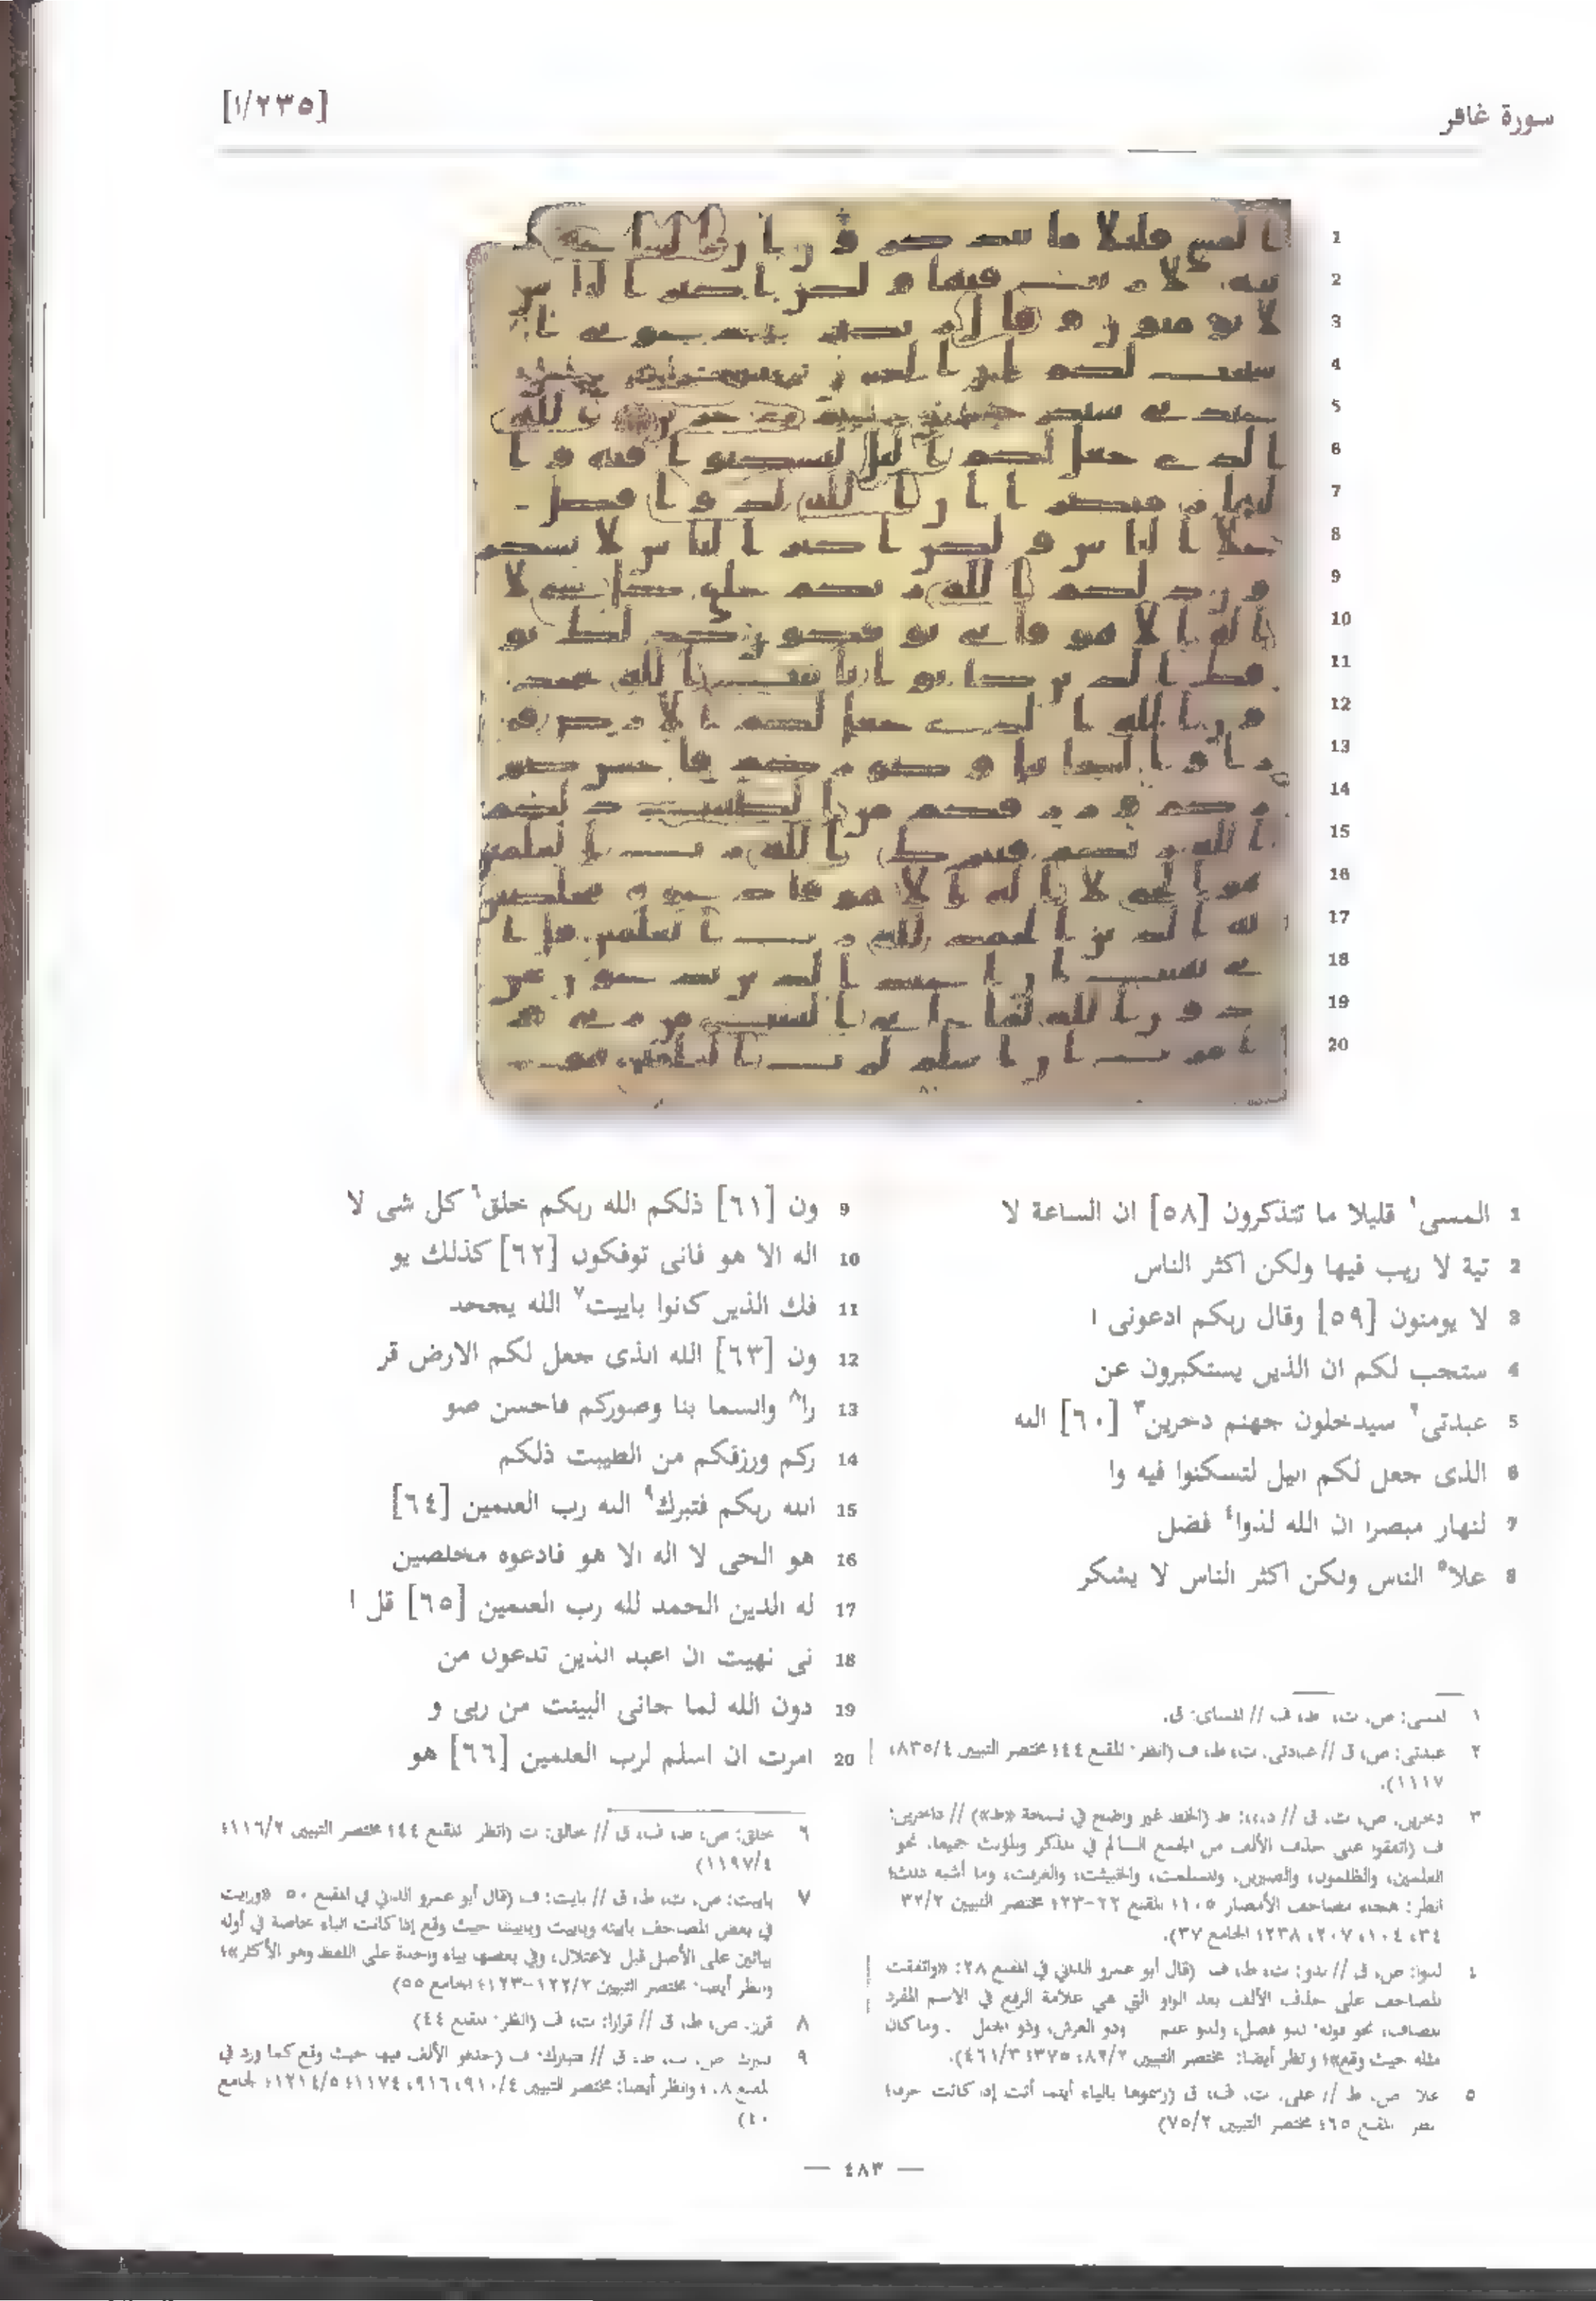 [١/٢٣٥]
سورة غافر
1 المسى١ قليلا ما تتذكرون [٥٨] ان الساعة لا
2 تية لا ريب فيها ولكن اكثر الناس
3 لا يومنون [٥٩] وقال ربكم ادعونى ا
4 ستجب لكم ان الذين يستكبرون عن
5 عبدتى٢ سيدخلون جهنم دخرين٣ [٦٠] الله
6 الذى جعل لكم اليل لتسكنوا فيه وا
7 لنهار مبصرا ان الله لذوا٤ فضل
8 علا٥ الناس ولكن اكثر الناس لا يشكر
9 ون [٦١] ذلكم الله ربكم خلق٦ كل شى لا
10 اله الا هو فانى توفكون [٦٢] كذلك يو
11 فك الذين كانوا باييت٧ الله يجحد
12 ون [٦٣] الله الذى جعل لكم الارض قر
13 را٨ والسما بنا وصوركم فاحسن صو
14 ركم ورزقكم من الطيبت ذلكم
15 الله ربكم فتبرك٩ الله رب العلمين [٦٤]
16 هو الحى لا اله الا هو فادعوه مخلصين
17 له الدين الحمد لله رب العلمين [٦٥] قل ا
18 نى نهيت ان اعبد الذين تدعون من
19 دون الله لما جانى البينت من ربى و
20 امرت ان اسلم لرب العلمين [٦٦] هو
١ المسى: ص، ت، ط، ف // المساى: ق.
٢ عبدتى: ص، ق // عبادتى. ت، ط، ف (انظر: المقنع ٤٤؛ مختصر التبيين ٨٣٥/٤،
١١١٧).
٣ دخرين. ص، ت، ق // ط (الخط غير واضح في نسخة «ط») // داخرين:
ف (اتفقوا على حذف الألف من الجمع السالم في المذكر والمؤنث جميعا. نحو
العلمين، والظلمون، والصبرين، والمسلمت، والخبيثت، والغرفت، وما أشبه ذلك؛
انظر: هجاء مصاحف الأمصار ١٠٥؛ المقنع ٢٢-٢٣؛ مختصر التبيين ٣٢/٢
٣٤، ١٠٤، ٢٠٧، ٢٣٨؛ الجامع ٣٧).
٤ لذوا: ص، ق // لذو: ت، ط، ف (قال أبو عمرو الداني في المقنع ٢٨: «واتفقت
المصاحف على حذف الألف بعد الواو التي هي علامة الرفع في الاسم المفرد
المضاف، نحو قوله: لذو فضل، ولذو علم وذو العرش، وذو الجلل . وما كان
مثله حيث وقع»؛ وانظر أيضا: مختصر التبيين ٨٢/٢؛ ٣٧٥، ٤٦١/٣).
٥ علا ص، ط // على. ت، ف، ق (رسموها بالياء أينما أتت إذا كانت حرفا؛
انظر المقنع ٦٥؛ مختصر التبيين ٧٥/٢)
٦ خلق: ص، ط، ف، ق // خالق: ت (انظر المقنع ٤٤؛ مختصر التبيين ١١٦/٢؛
١١٩٧/٤)
٧ باييت: ص، ت، ط، ق // بايت: ف (قال أبو عمرو الداني في المقنع ٥٠ «ورايت
في بعض المصاحف باييته وباييت وباييتنا حيث وقع إذا كانت الباء خاصة في أوله
بيائين على الأصل قبل الاعتلال، وفي بعضها بياء واحدة على اللفظ وهو الأكثر»؛
وانظر أيضا: مختصر التبيين ١٢٢/٢-١٢٣؛ الجامع ٥٥)
٨ قررا. ص، ط، ق // قرارا: ت، ف (انظر: المقنع ٤٤)
٩ ص، ت، ط، ق // فتبارك: ف (حذفو الألف فيها حيث وقع كما ورد في
المقنع ١٨؛ وانظر أيضا: مختصر التبيين ٩١٠/٤، ٩١٦، ١١٧٤؛ ١٢١٤/٥؛ الجامع
٤٠)
— ٤٨٣ —